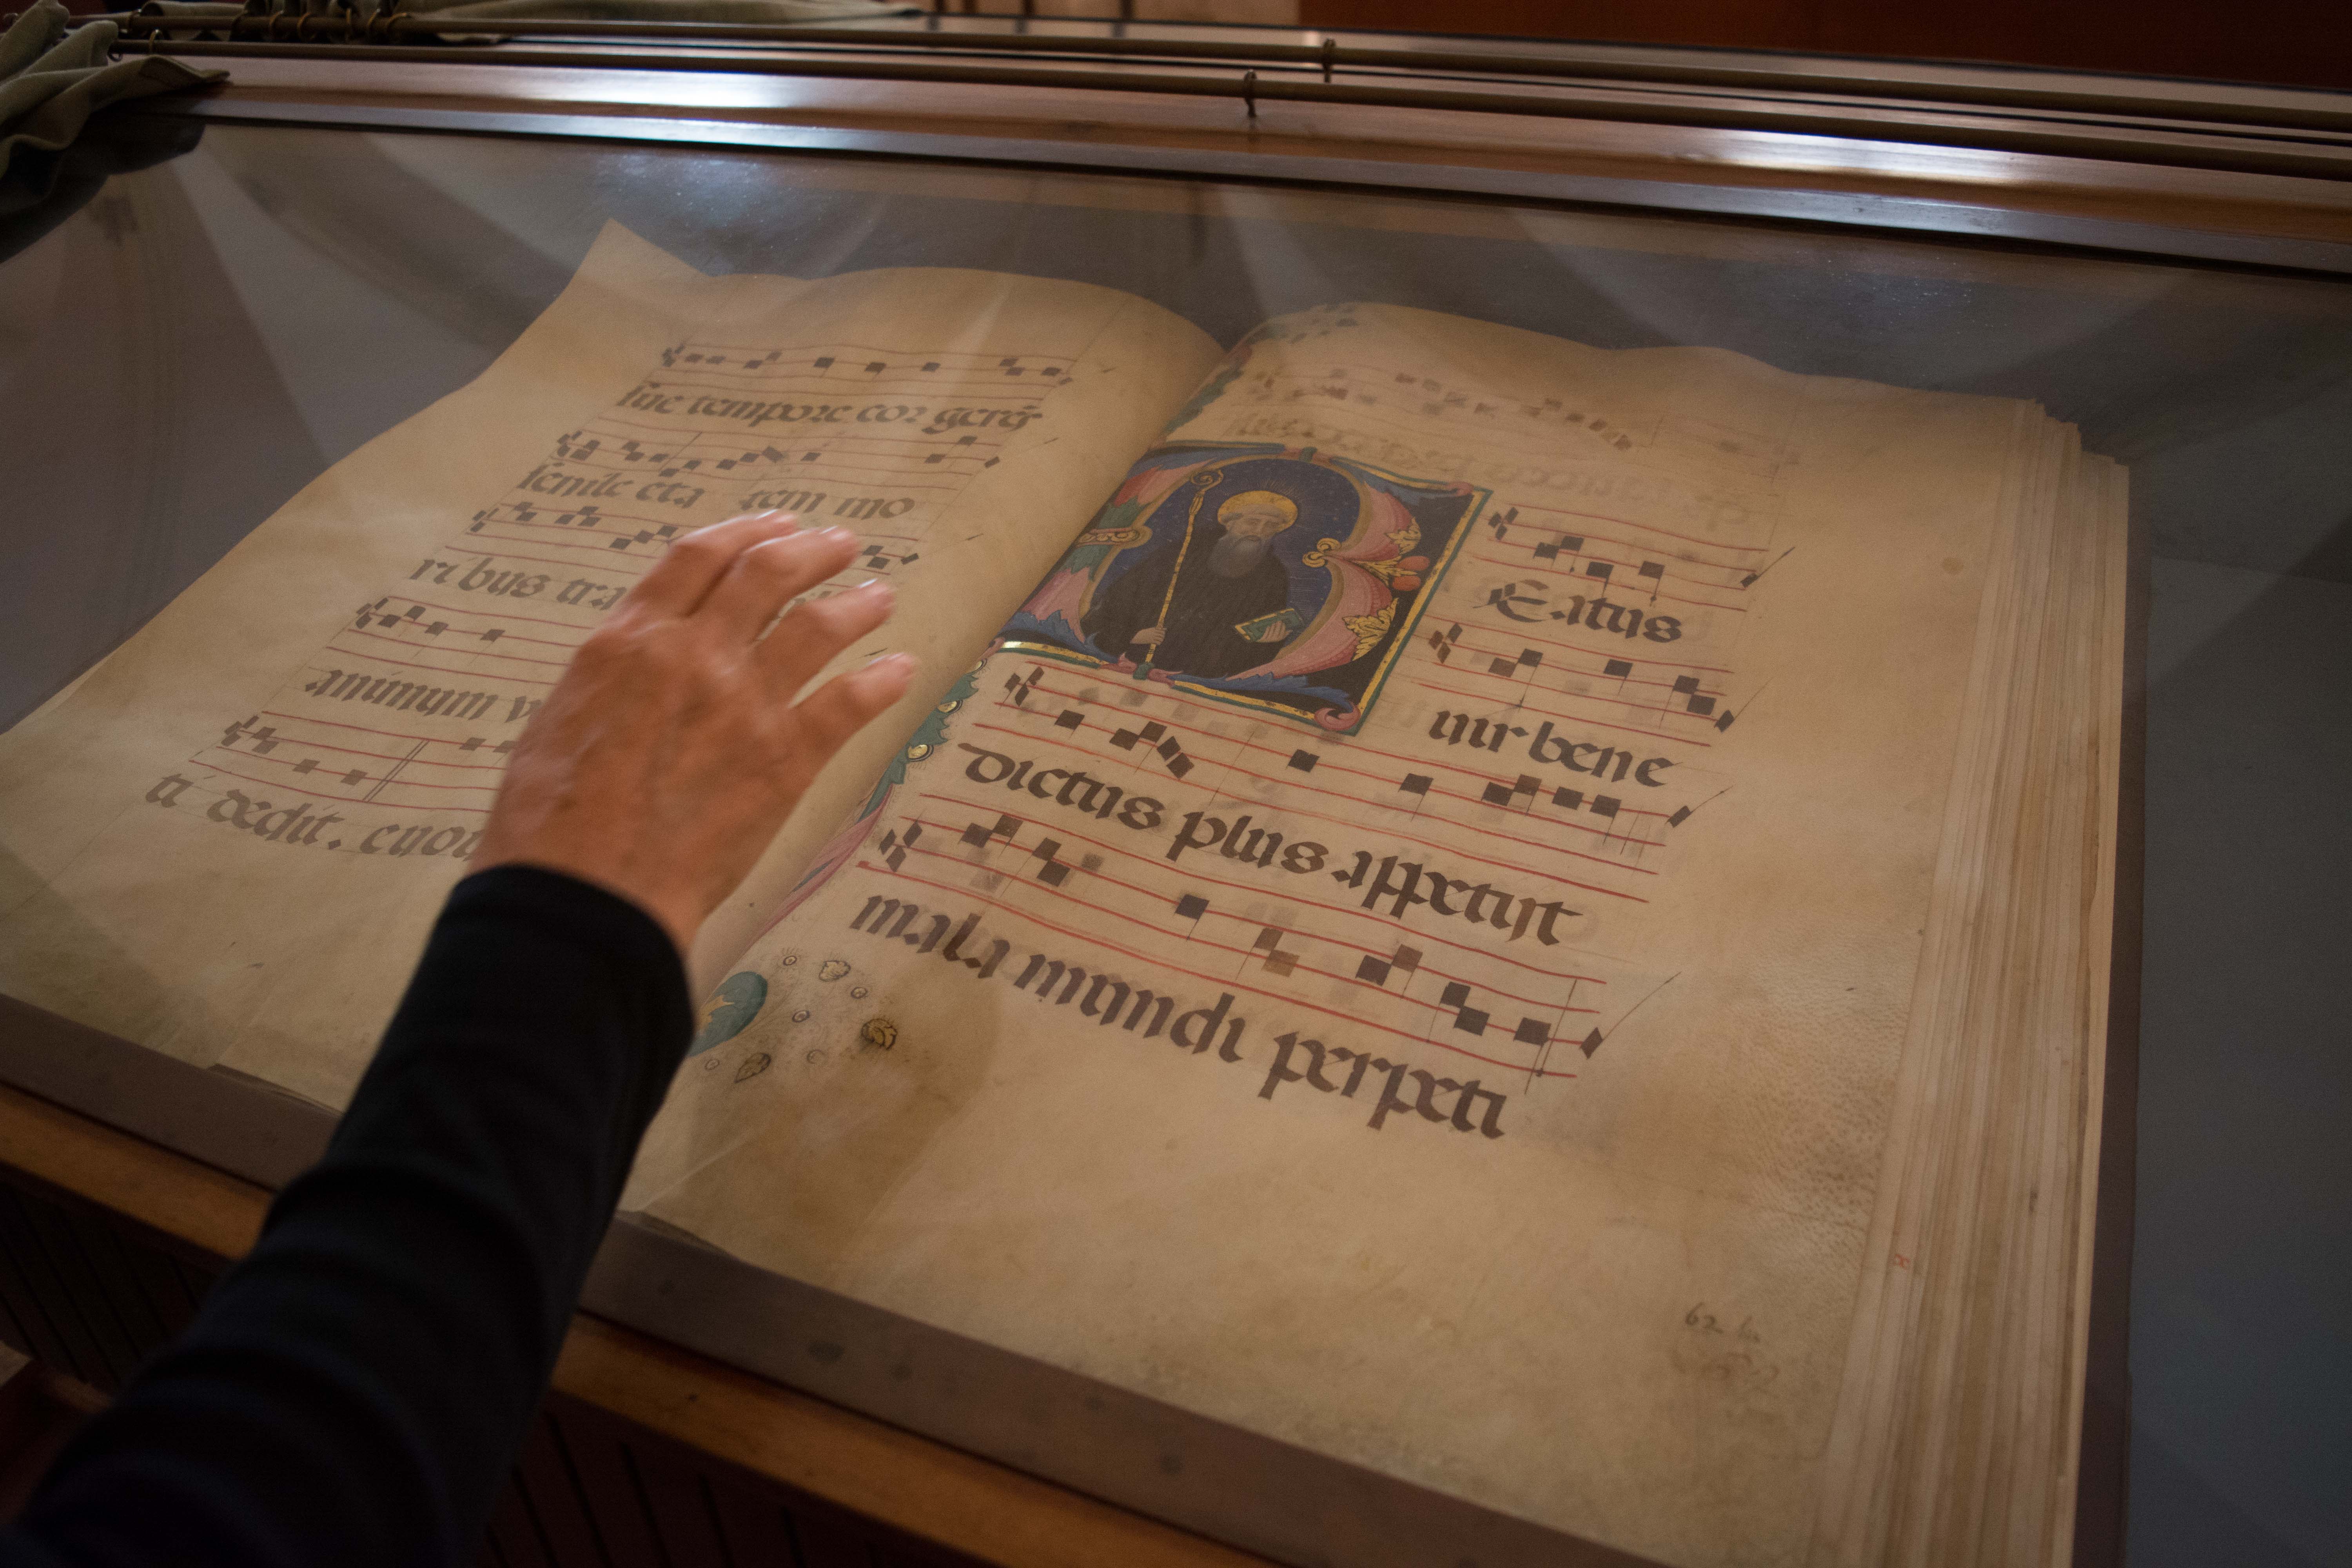 sue tempore cor gerēs
senile eta tem mo
ri bus tra
animum v
ti dedit. cuou
Eatus
uir bene
dictus plus appetiit
mala mundi perpeti
62